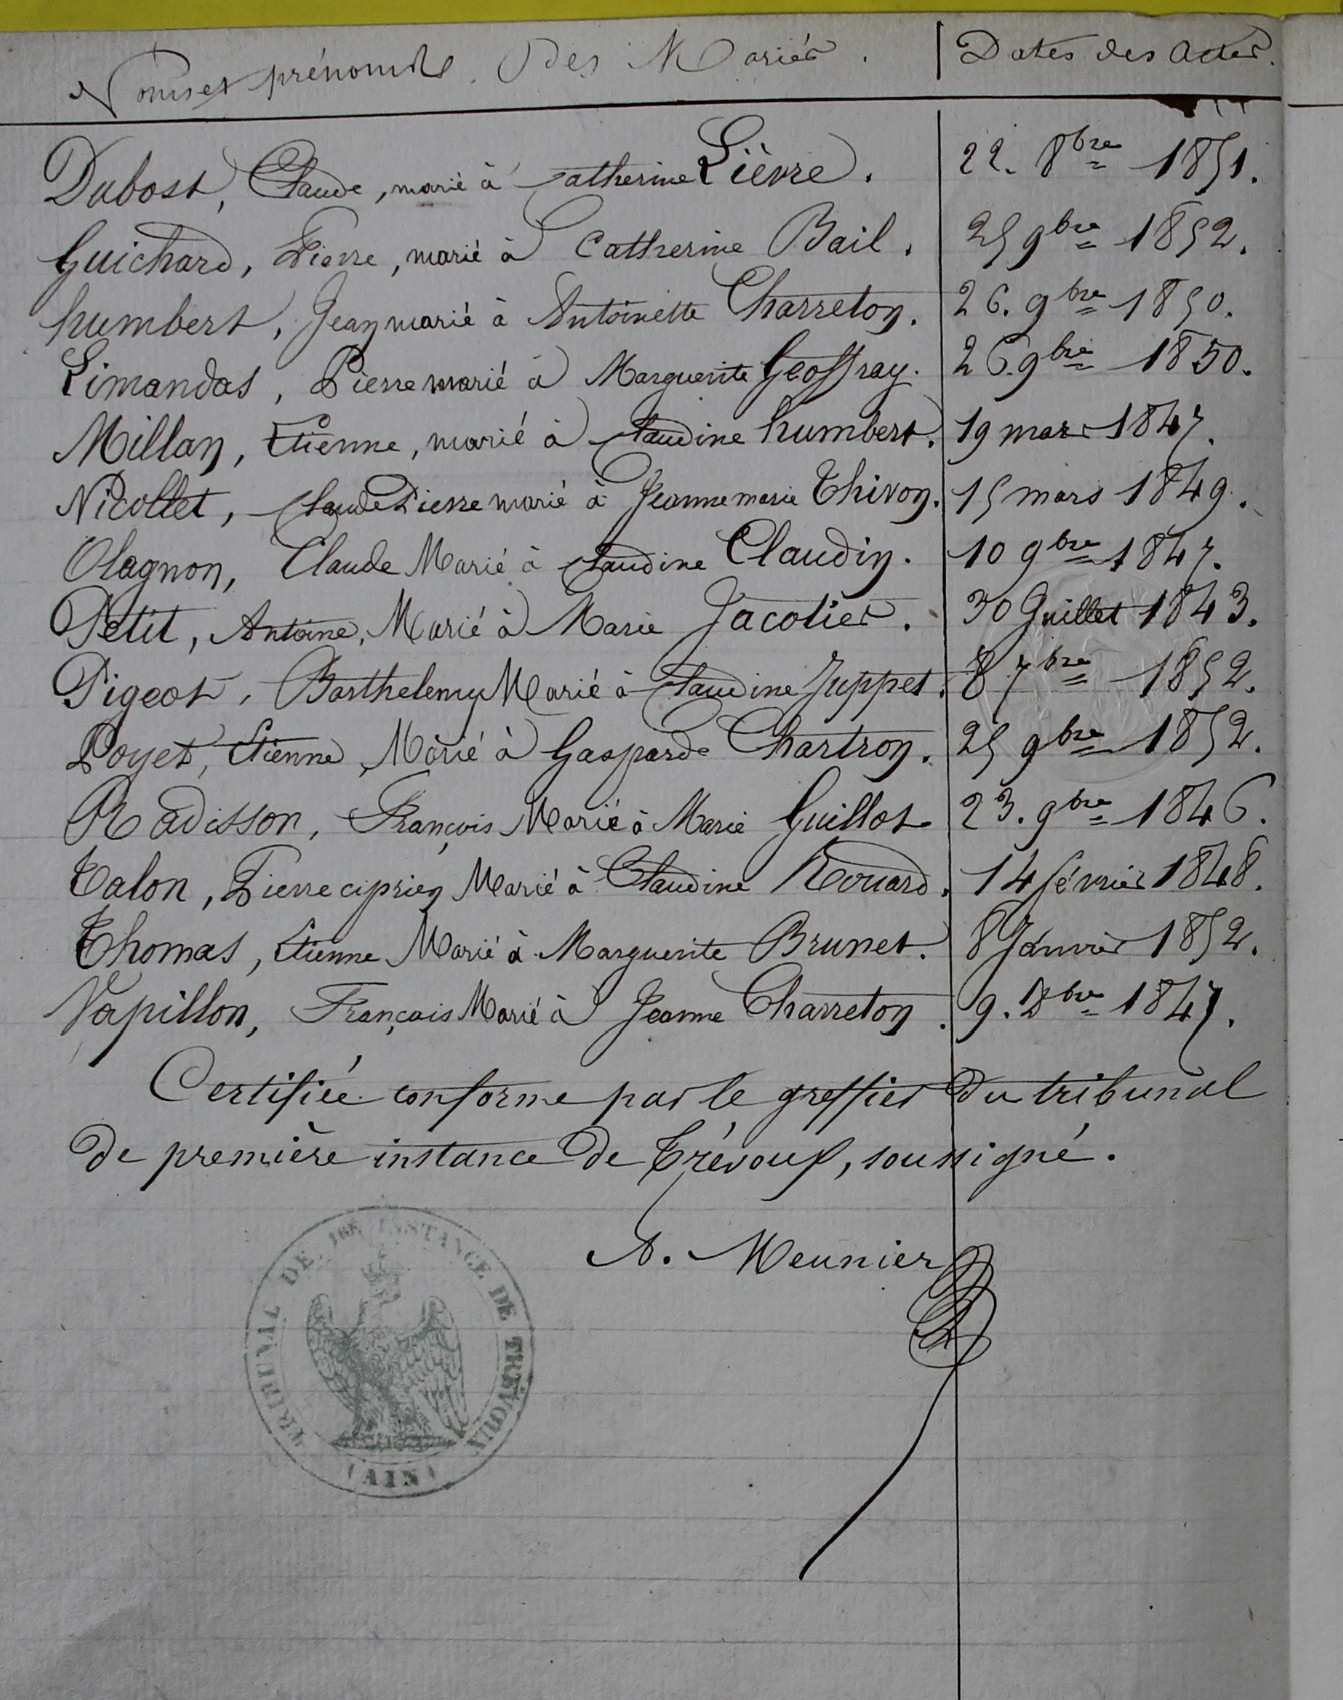 Noms et prénoms Des Mariés. Dates des actes.
Dubost, Claude, marié à Catherine Lièvre. 22. 8bre 1851.
Guichard, Pierre, marié à Catherine Bail. 25 9bre 1852.
humbert, Jean marié à Antoinette Charreton. 26. 9bre 1850.
Limandas, Pierre marié à Marguerite Geoffray. 26. 9bre 1850.
Millan, Etienne, marié à Claudine humbert. 19 mars 1847.
Nicollet, Claude Pierre marié à Jeanne marie Thivon. 15 mars 1849.
Olagnon, Claude Marié à Claudine Claudin. 10 9bre 1847.
Petit, Antoine, Marié à Marie Jacotier. 30 Juillet 1843.
Pigeot, Barthelemy Marié à Claudine Juppet. 8 7bre 1852.
Poyet, Etienne, Marié à Gasparde Chartron. 25 9bre 1852.
Radisson, François Marié à Marie Guillot 23. 9bre 1846.
Talon, Pierre ciprien Marié à Claudine Rouard. 14 février 1848.
Thomas, Etienne Marié à Marguerite Brunet. 8 Janvier 1852.
Vapillon, François Marié à Jeanne Charreton. 9. Xbre 1847.
Certifiée conforme par le greffier du tribunal
de première instance de Trévoux, soussigné.
A. Meunier
TRIBUNAL DE 1ERE INSTANCE DE TRÉVOUX
(AIN)